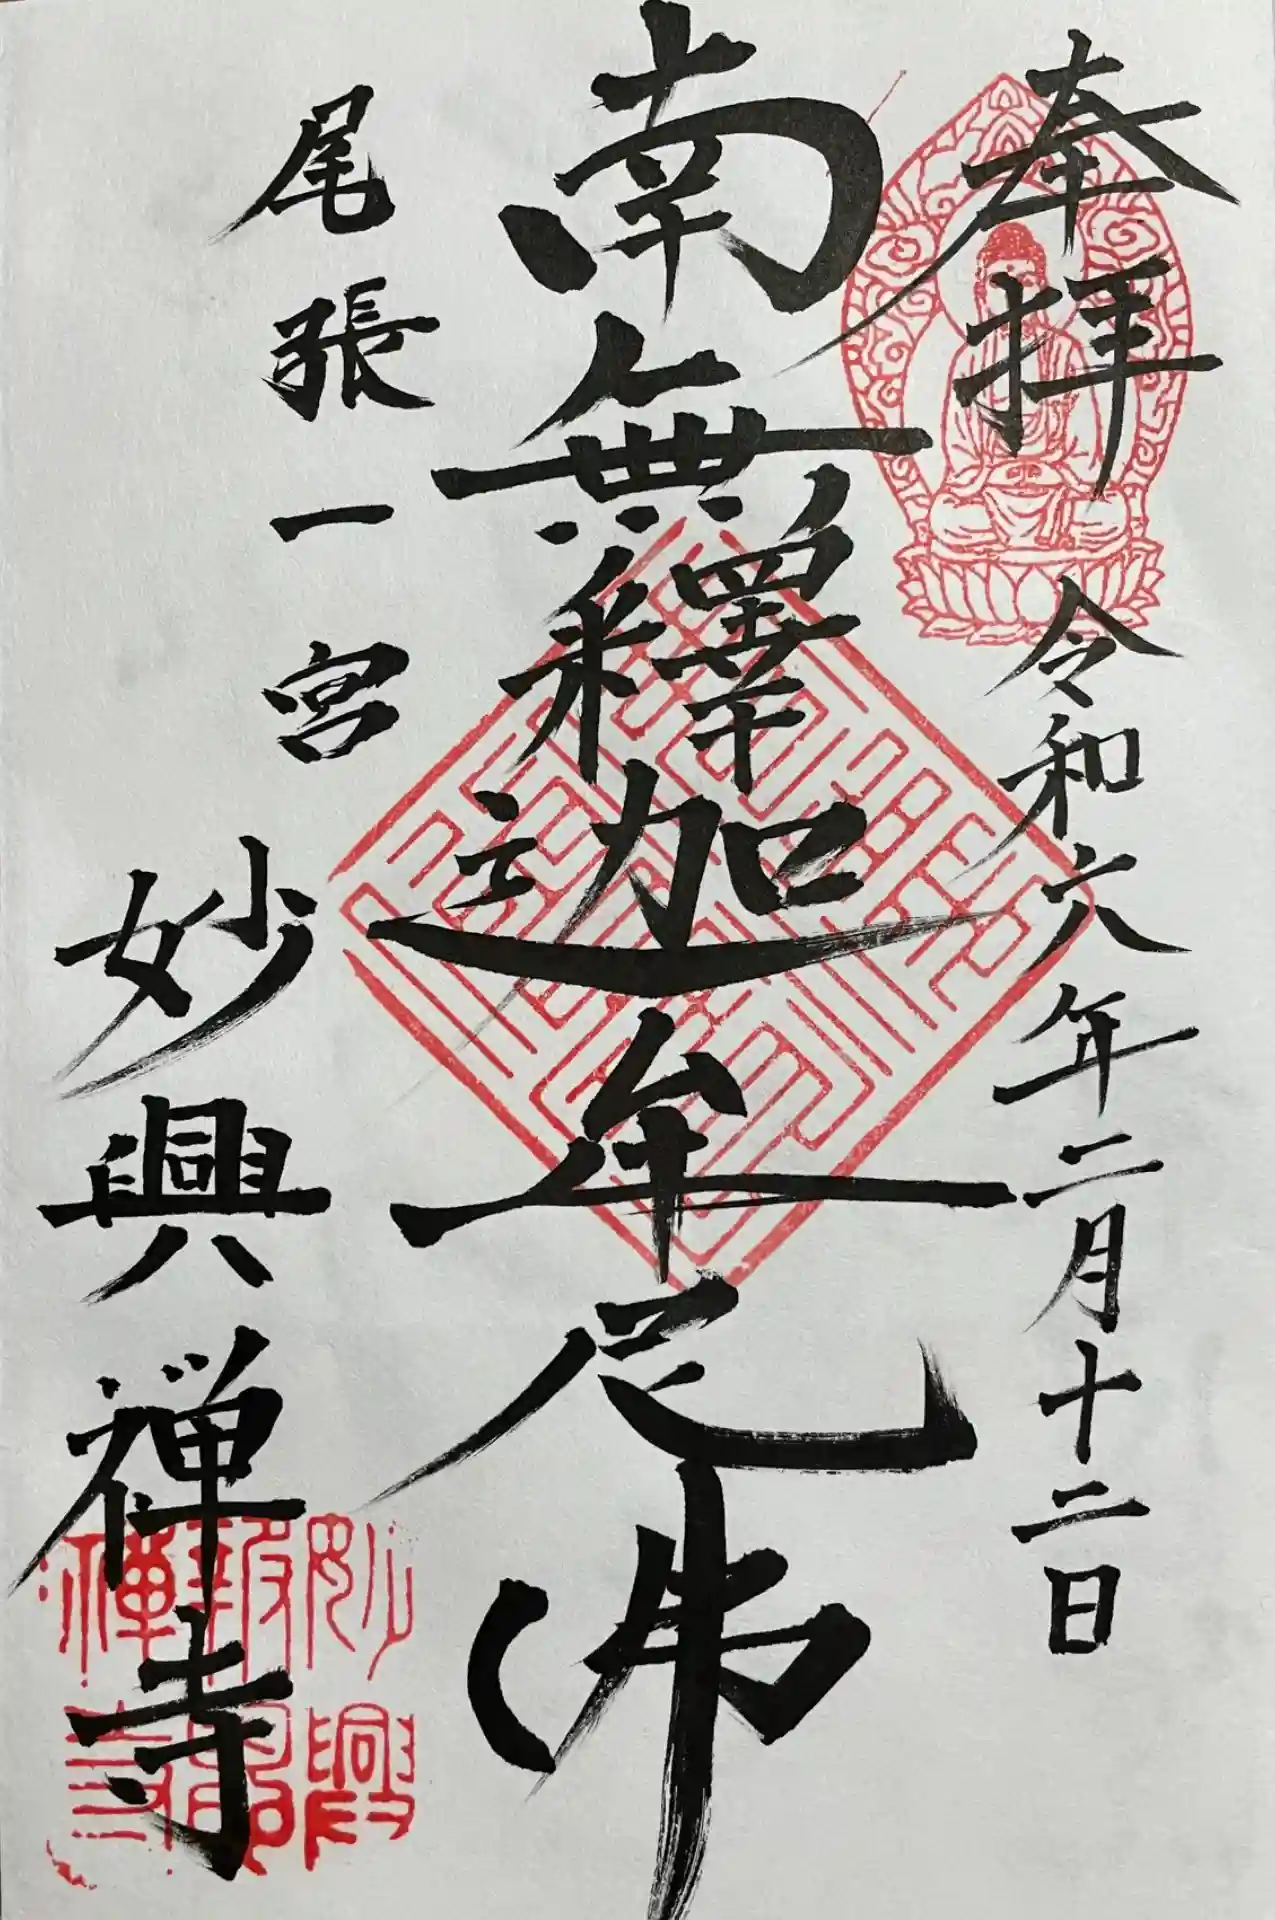 奉拝
令和六年二月十二日
南無釋迦牟尼佛
尾張一宮
妙興禅寺
妙興報恩禅寺